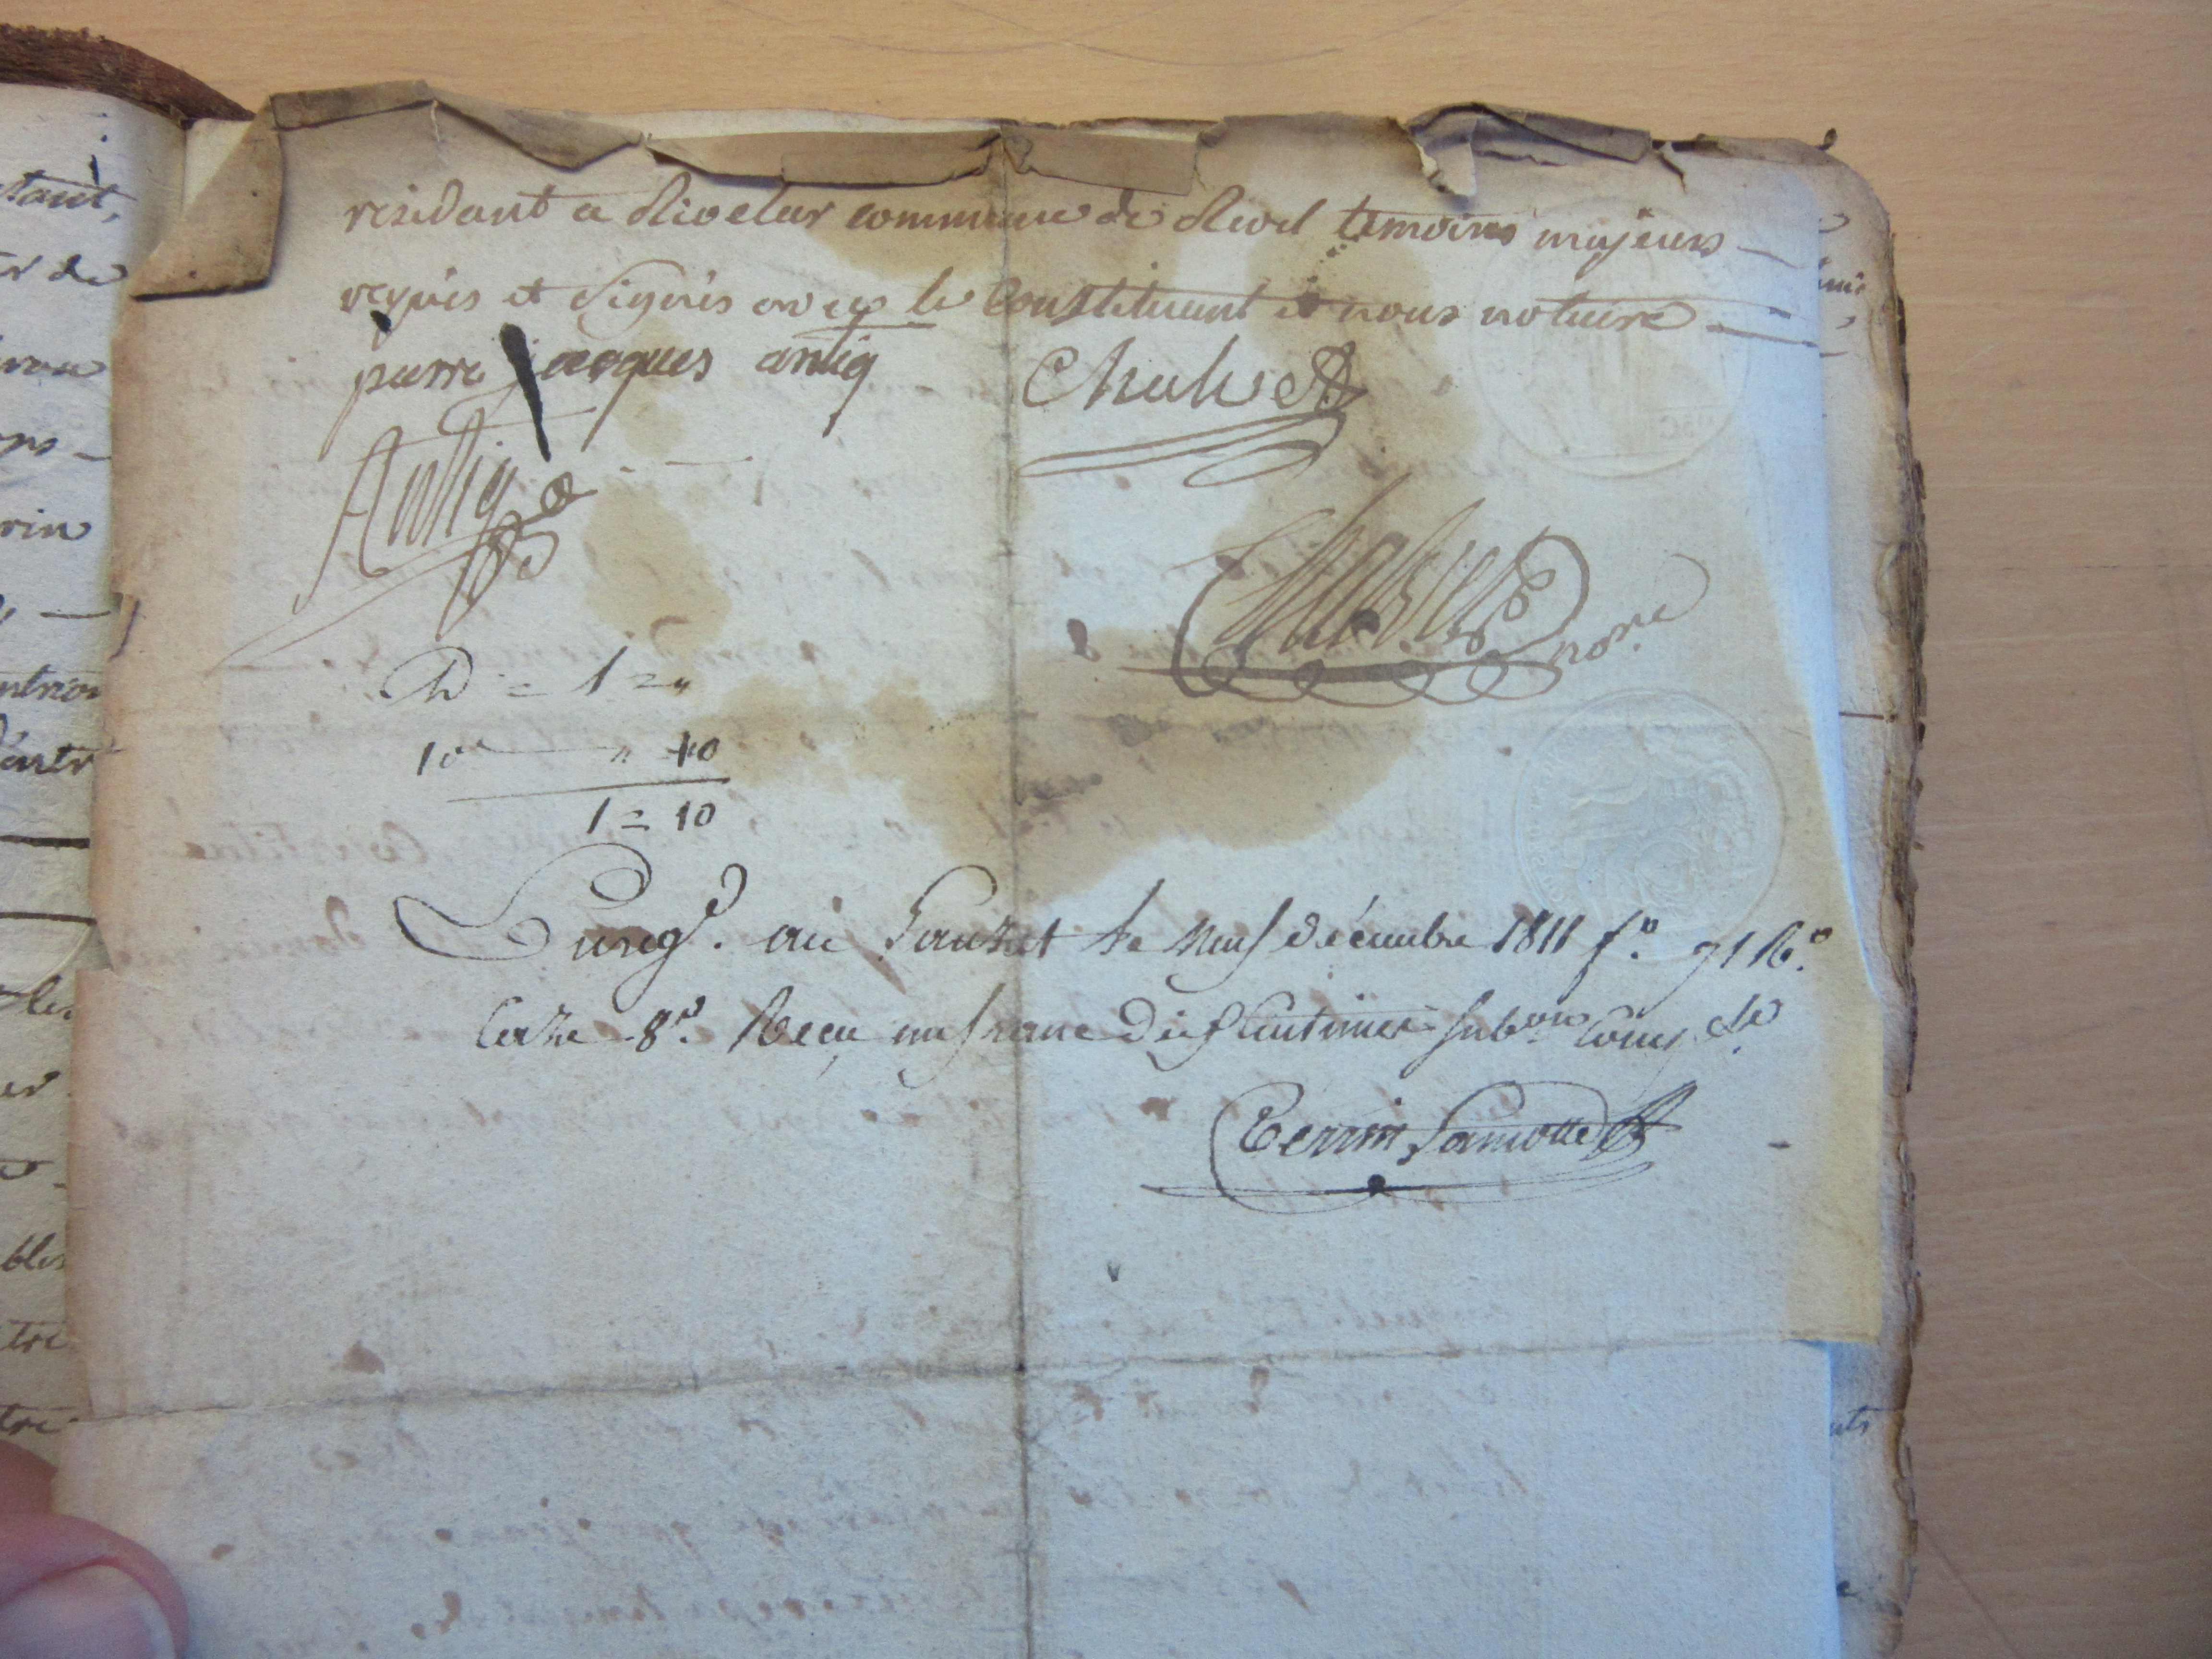 residant a Rioclar commune de Revel temoins majeurs
requis et signés avec le Constituant et nous notaire
pierre jacques antiq
Chalvet
Antiq
Chalvet no.re
D = 1 = "
10e " 10
1 = 10
Enreg.é au Lauzet le neuf décembre 1811 f.o 91 R.o
Caze 8.e Reçu un franc dix Centimes sub.on Comp.se
Perrin Lamotte